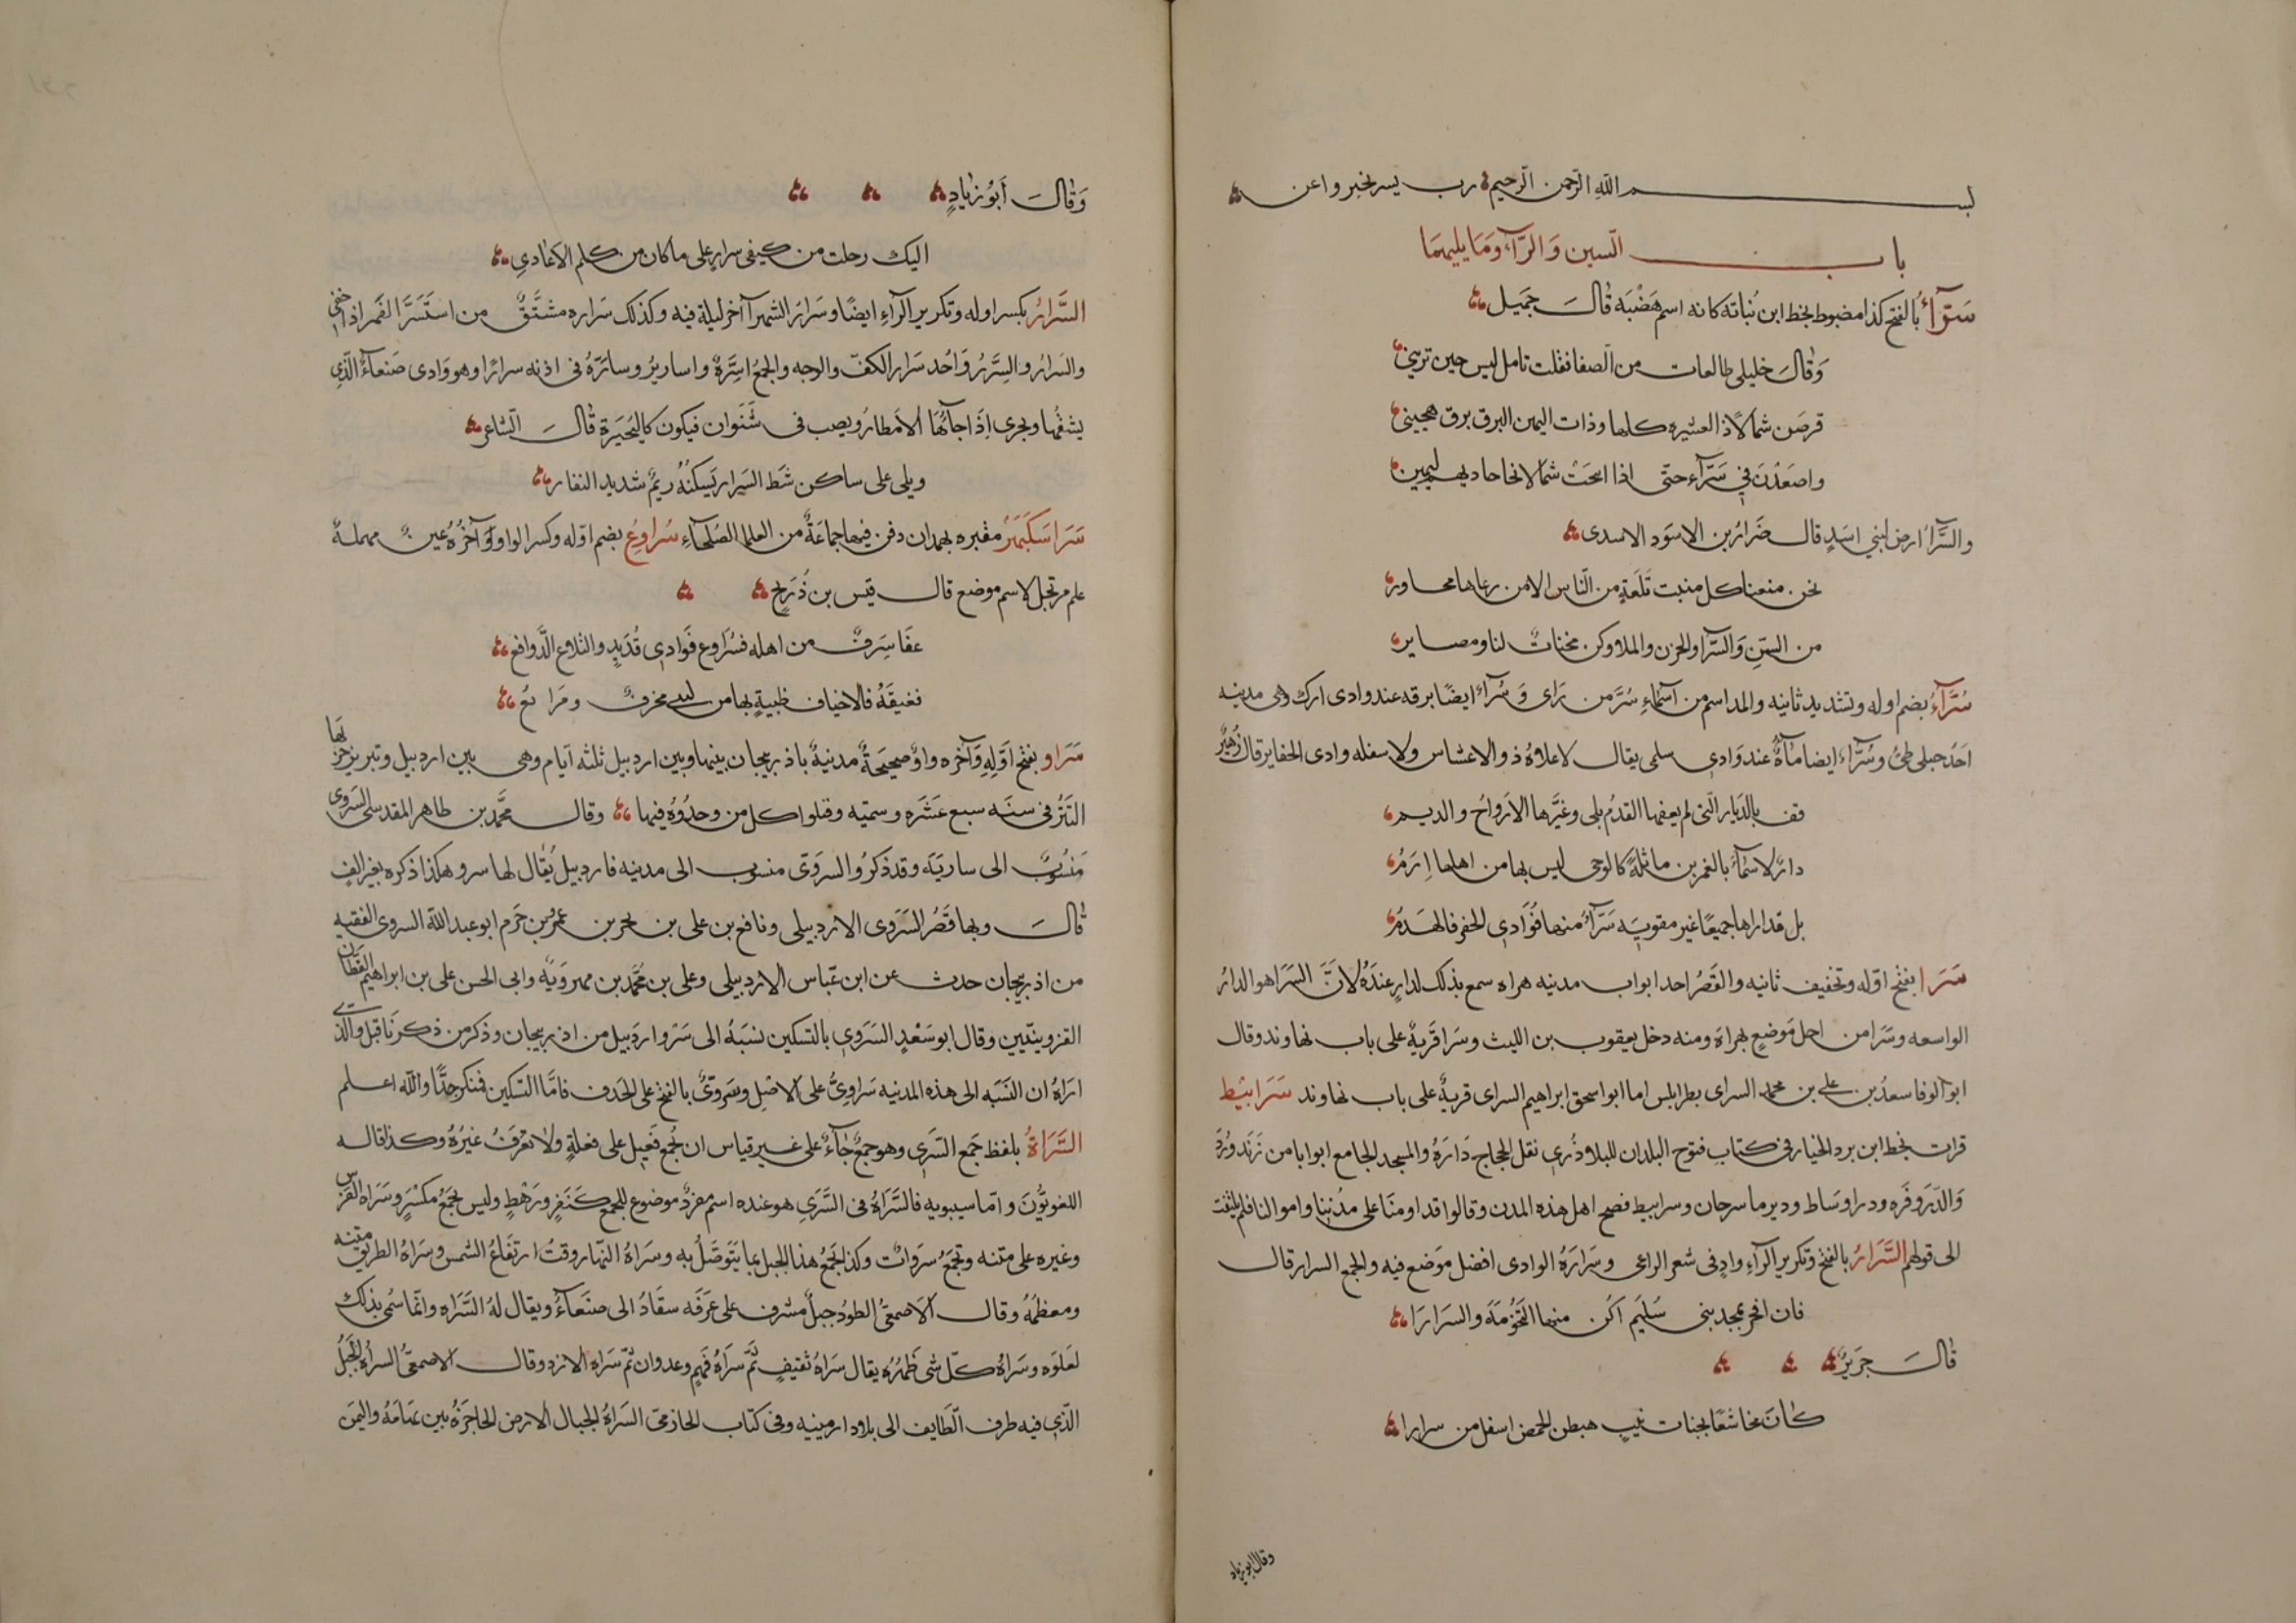 بسم الله الرحمن الرحيم رب يسر بخير واعن
باب السين وَالرَّآء وَمَا يليهمَا
سَرّآءُ بالفتح كذا مضبوط بخط ابن نُباته كانه اسم هَضْبَه قالَ جَميل
وَقالَ خليلى طالعات من الصفا فقلت تامل ليس حين تريني
قرضن شمالاً ذا العشيره كلها وذات اليمين البرق برق هجيني
واصعَدْنَ فِي سَرّآء حتّى اذا انتحَتْ شمالا نحا حاديهم ليمين
والسَّرَّآءُ ارض لبني اسَدٍ قال ضرَارُ بن الاسوَد الاسدى
نحن منعنا كل منبت تَلعَةٍ من النّاس الا من رعاها محاور
من السِّرِّ وَالسّرّا والحزن والملا وكن مخنات لنا ومصاير
سُرَّآءُ بضم اوله وتشديد ثانيه والمد اسم من اسمَاءِ سُرَّ من رَاى وَسُرآءُ ايضًا برقه عند وادى ارك وهى مدينه
احَد جبلى طىّ وسُرَّآء ايضا مآءٌ عند وَادى سلمى يقال لاعلاهُ ذو الاعشاس ولاسفله وادى الحفاير قال زُهَيْرٌ
قف بالدّيار الّتى لم يعفها القدمُ بلى وغيَّرها الارَواحُ والديم
دارٌ لاسْمآءَ بالغمرين ماثلةً كالوحى ليس بها من اهلها اِرَمُ
بل قد اراها جميعًا غير مقويَة سَرّآءُ منها فَوَادى الحفر فالهَدمُ
سَرَا بفتح اوّله وتخفيف ثانيه والقَصْر احد ابواب مدينه هراه سمع بذلك لدارٍ عندَهُ لاَنّ السَرَا هو الدارُ
الواسعه وسَرَا من اجل مَوضعٍ بهراة ومنه دخل يعقوب بن الليث وسَرَا قَريةٌ على باب نهاوند وقال
ابو الوفا سعدُ بن على بن محمد السراى بطرابلس اما ابو اسحق ابراهيم السراى قريةٌ على باب نهاوند سَرَابيْط
قرات بخط ابن برد الخيار فى كتاب فتوح البلدان للبلاذُرى نقل الحجاج دَارَهُ والمسجد الجامع ابوابا من زَندَورْدَ
وَالدَّرَوقرَه ودراوسَاط ودير ماسرجان وسرابيط فصح اهل هذه المدن وقالوا قد اومنّا على مدُننِنا واموالنا فلم يلتفت
الى قولهم السَّرَارُ بالفتح وتكرير الرآءِ وادٍ فى شعر الراعى وسَرَارَةُ الوادى افضل مَوضع فيه والجمع السرار قال
فان افخر بمجد بنى سُلَيم اَكُن منها التَخُومَة والسَرَارَا
قالَ جَريرٌ
كانَ مجاشعًا بجنات نيبٍ هبطن الحمض اسفل من سرارا
وقال ابو زياد
وَقالَ أَبوُ زيادٍ
اليك رحلت من كنفى سرارٍ على ما كان من كلم الاعَادى
السَّرارُ بكسر اوله وتكرير الرآءِ ايضًا وسَرَارَ الشهر آخر ليلة فيه وكذلك سَراره مشتَقٌّ من استَسَرَّ القمر اذا خفى
والسَرارُ والسِّرَرُ وَاحد سَرار الكفّ والوجه والجمعُ اسِرَّةٌ واساريرُ وسارَّهُ فى اذنه سرارًا وهو وَادى صَنعآءُ الّذِي
يشقُّها ويجرى اِذَا جاَتُها الاَمطارُ ويصب فى سَنَوان فيكون كالبُحَيَرة قالَ الشاعر
ويلى على ساكن شَط السَرار يَسكنُهُ ريمٌ شديد النفار
سَرَاسَكبَهَرْ مقبره بهمدان دفن فيها جماعَةٌ من العلما الصُلحآءِ سُراوِع بضم اوّله وكسر الواو وَآخرُهُ عينٌ مهملةٌ
علم مرتجل لاسم موضع قال قيس بن ذُرَيح
عفَا سَرِفٌ من اهله فسُرَاوع فوَادى قُدَيدٍ والتلاع الدَّوافع
فغيقَةُ فالاخياف ظبيةٍ بها من لبنى مخرفٌ ومَرَابعُ
سَرَاو بفتح اَوّلِهِ وَآخره واوٌ صحيحَةٌ مدنيةٌ باذربيجان بينها وبين اردبيل ثلثه اَيام وهى بين اردبيل وتبريز خرّبَها
التَتَرُ فى سنَه سبع عَشَره وستميه وقتلوا كل من وجدُوهُ فيها وقال محَّمد بن طاهر المقدسى السَرَوِى
مَنسُوبٌ الى ساريَة وقد ذكرُ والسروىّ منسوب الى مدينه فاردبيل يُقال لها سرو هكذا ذكره بغير الفٍ
قالَ وبها قَصُر السَرَوى الاردبيلى ونافع بن على بن بحر بن عمرو بن حَزم ابو عبد الله السروى الفقيه
من اذربيجان حدث عن ابن عبّاس الاردبيلى وعلى بن محَّمد بن مهرويَهٌ وابى الحسن على بن ابراهيم القطّان
القزوينيّين وقال ابو سَعْدٍ السَرَوى بالتسكين نسَبَهُ الى سَرْو اردَبيل من اذربيجان وذكر من ذكرنَا قبل والّذى
ارَاهُ ان النَسَبَه الى هذه المدينه سَراوِىُّ على الاصْلِ وسَروىٌّ بالفتح على الحَذف فامّا التسكين فمنكر جدًّا والله اعلم
السَّرَاةُ بلفظ جَمع السَّرى وهو جمعٌ جاءَ على غير قياس ان يُجمعِ فَعِيل على فعلةٍ ولا نعرف غيَرهُ وكذا قاله
اللغويُّونَ وامّا سيبويه فالسَّرَاةُ فى السَّرَي هو عنده اسم مفردٌ موضوع للجمع كنَفرٍ ورَهْطٍ وليس بجَمَعُ مكسّرٍ وسَرَاه الفَرَس
وغيره على متنه وتجمَعُ سروَاتٌ وكذا يجمَعُ هذا الجبل بما يتَوَصَّلُ به وسَراةُ النّهار وقتُ ارتفاعُ الشمس وسَراةُ الطريق متنه
ومعظمُهُ وقال الاَصمعىُّ الطودُ جبلٌ مشرف على عَرَفَه سقَادُ الى صَنَعآءُ ويقال لهُ السَّرَاه وانّما سُمى بذلك
لعَلوّه وسَراةُ كلّ شى ظَهرُه يقال سَراةُ ثقيفٍ ثُمَّ سَراةُ فَهمٍ وعدوان ثمّ سَراةِ الازد وقال الاصمعىُّ السراةُ الجَبَلُ
الّذى فيه طرف الطّايف الى بلاد ارمينيه وفى كتاب الحازمىّ السَراةُ الجبال الارض الحاجزَةُ بين تهَامَةُ واليمَن